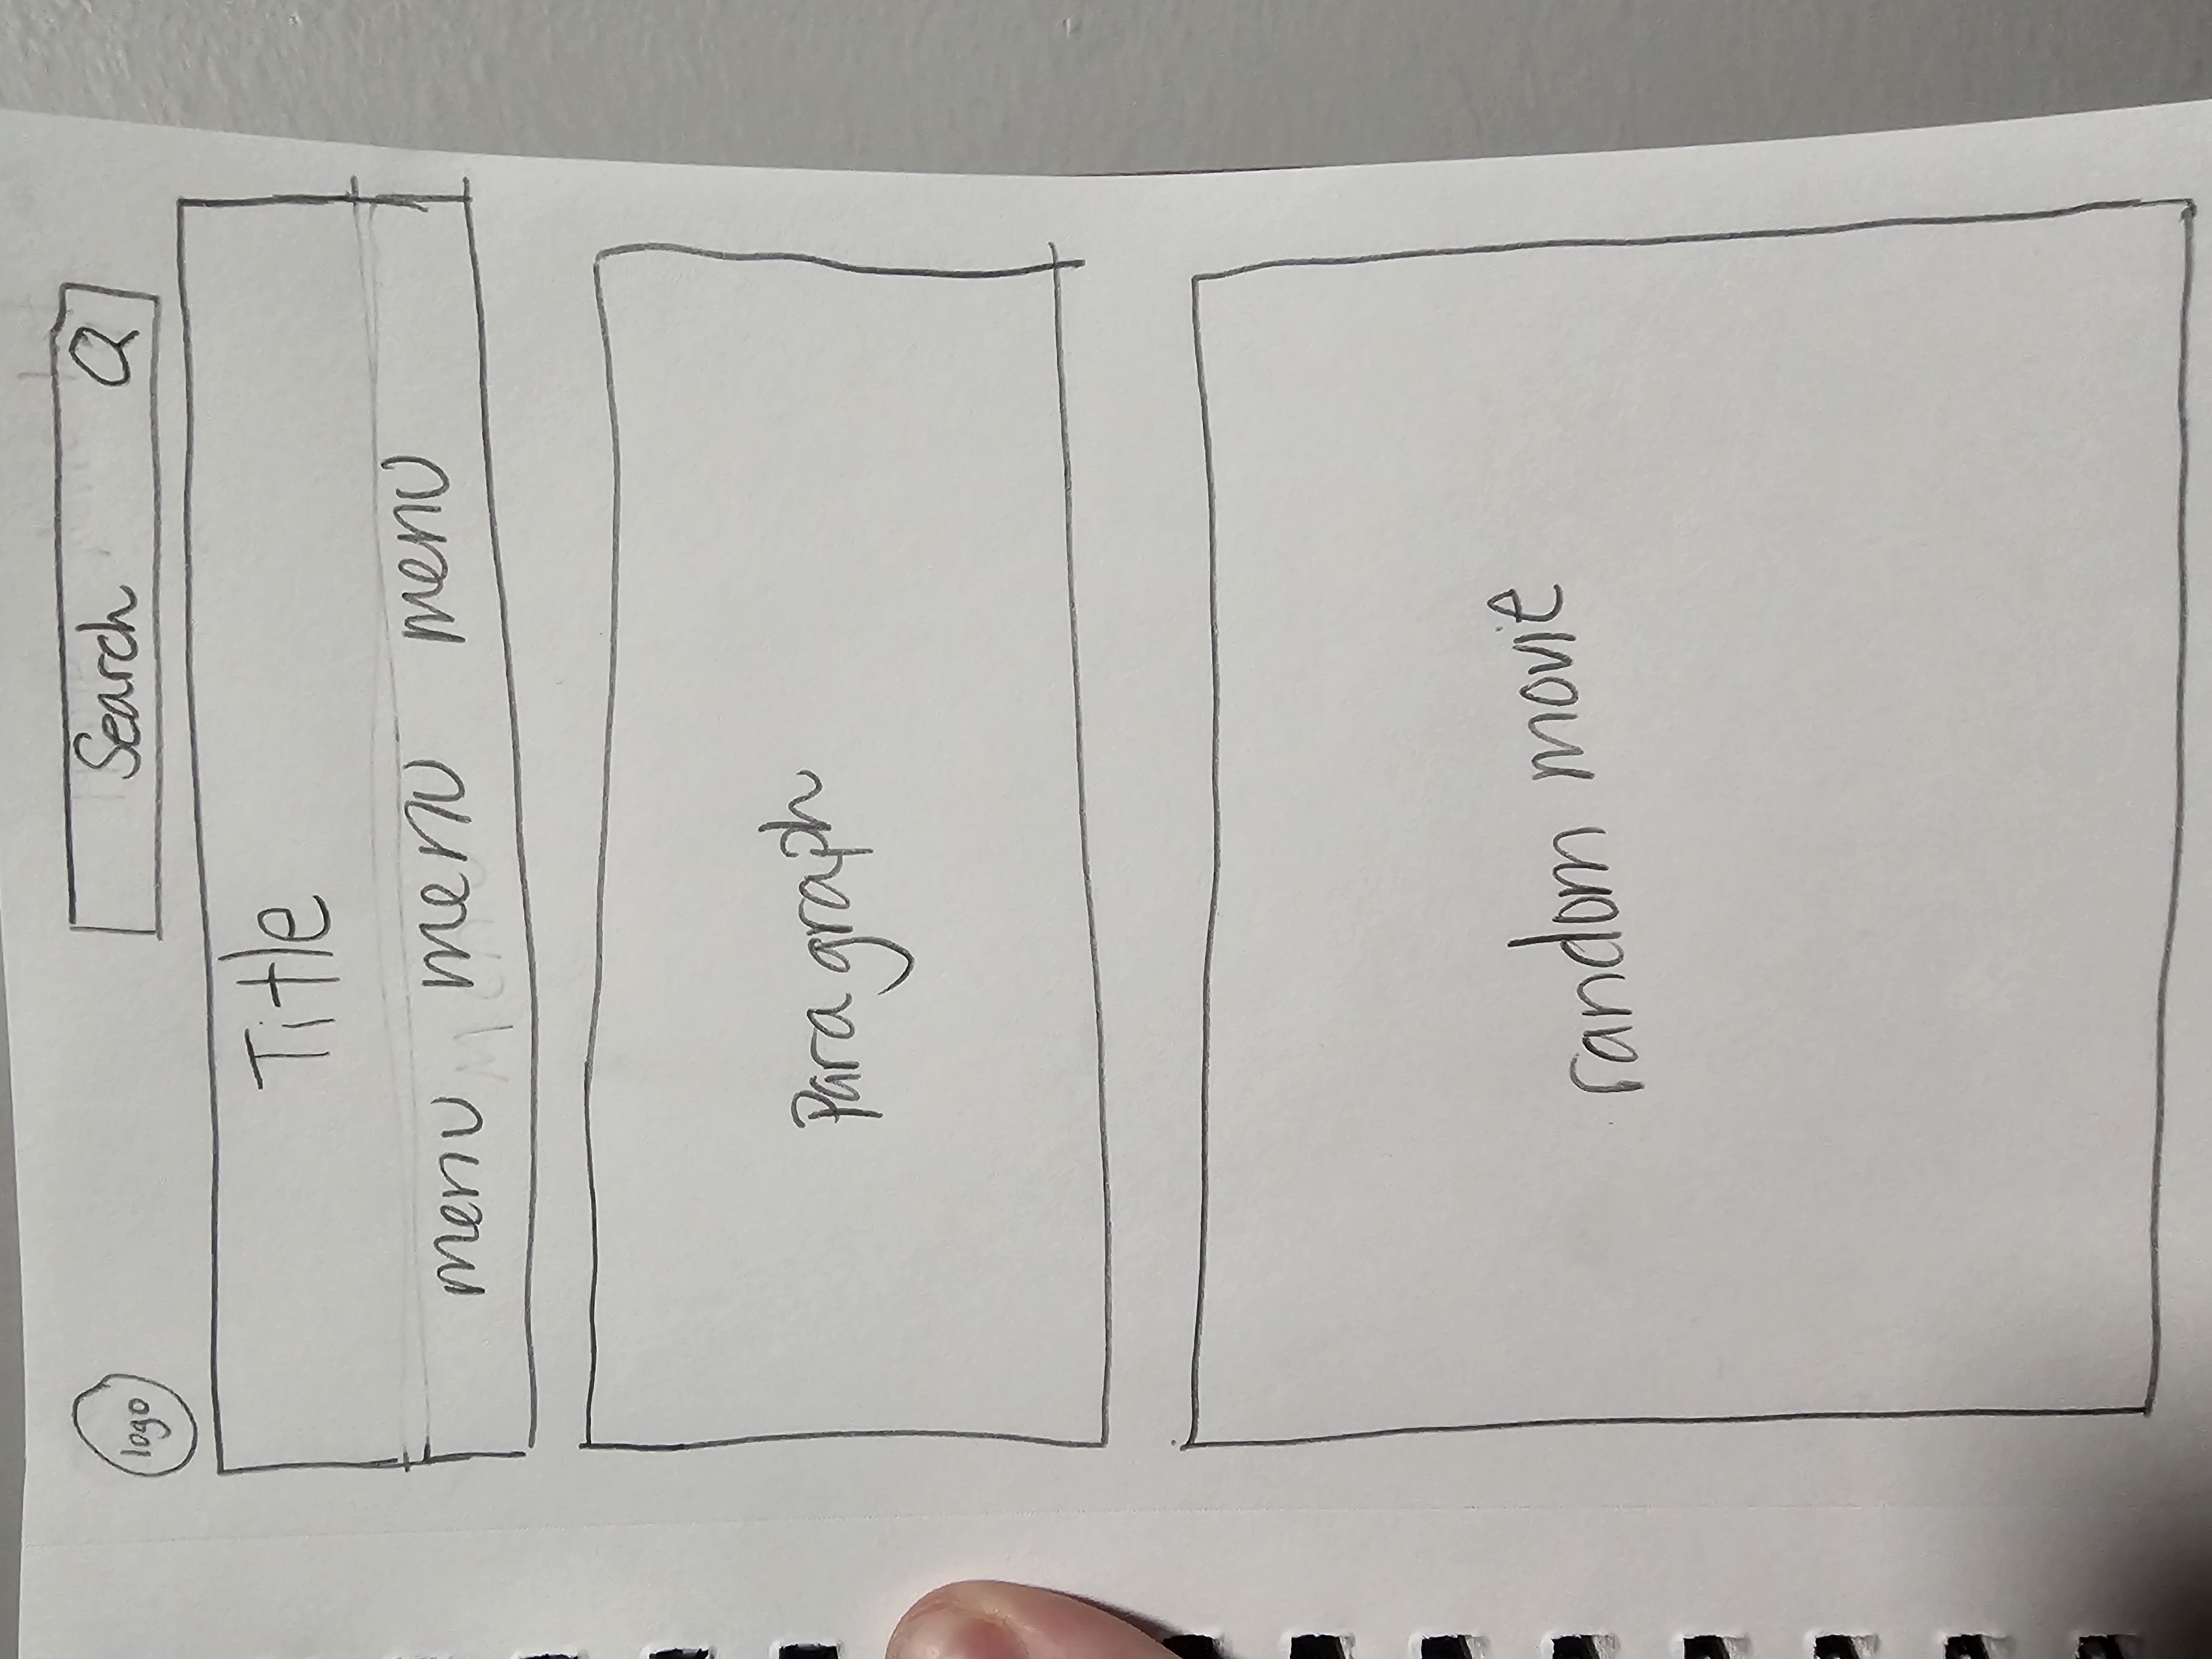 logo
Search
Title
menu menu menu
Paragraph
random movie